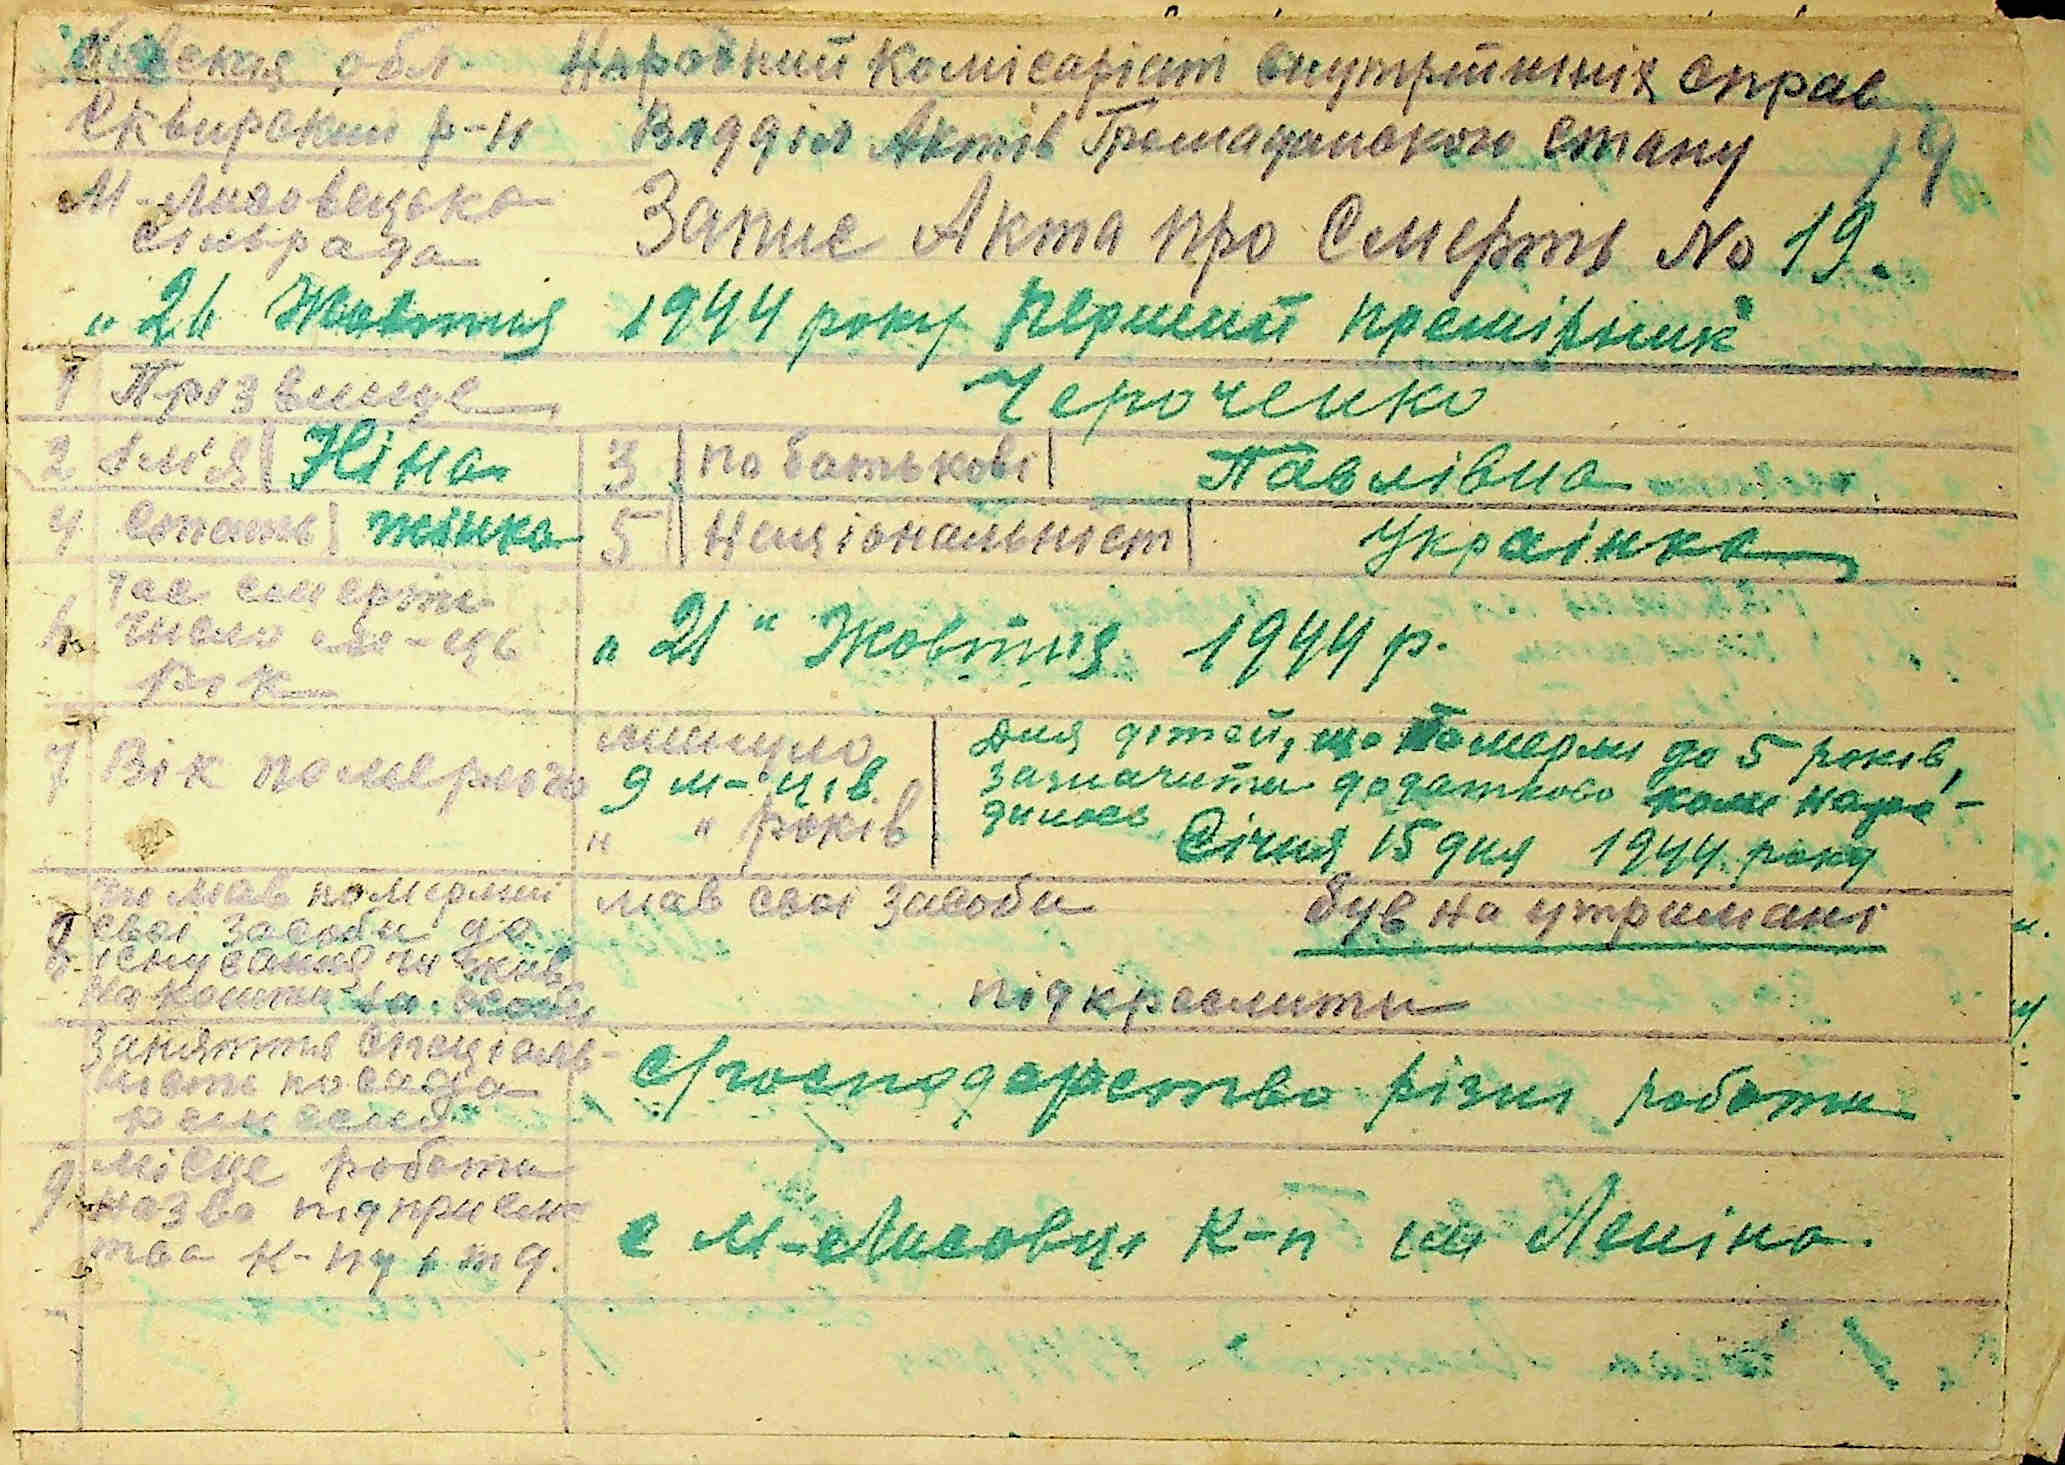 Київська обл. Народний Комісаріат Внутрішніх справ
Сквирский р-н Відділ Актів Громадянского Стану 19
М-Лисовецька сільрада
Запис Акта про Смерть No 19.
" 26 Жовтня 1944 року Перший примірник"
1 Прізвище Чероченко
2 Ім'я Ніна 3 по батькові Павлівна
4 стать жінка 5 Національніст Українка
6 Час смерти число м-ць рік " 21 " Жовтня 1944 р.
7 Вік померлого минуло 9 м-ців " " років
Для дітей, що Померли до 5 років,
зазначити додатково коли наро-
дилось Січня 15 дня 1944 року
8 чи мав померлий свої засоби до існування чи жив на кошти
мав свої засоби був на утримані
підкреслити
Заняття спеціаль-
ність посада
с/господарство різні роботи
9 місце роботи
назва підприємс
тва к-пу і т д.
с М-Лисовці К-п ім Леніна